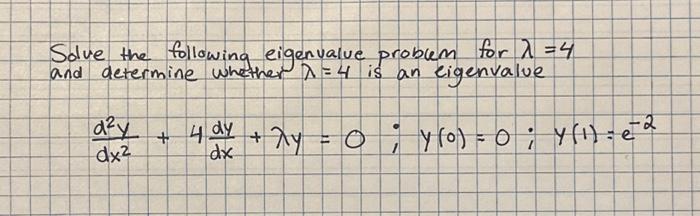 Solve the following eigenvalue problem for λ = 4
and determine whether λ = 4 is an eigenvalue
d²y/dx² + 4 dy/dx + λy = 0 ; y(0) = 0 ; y(1) = e⁻²